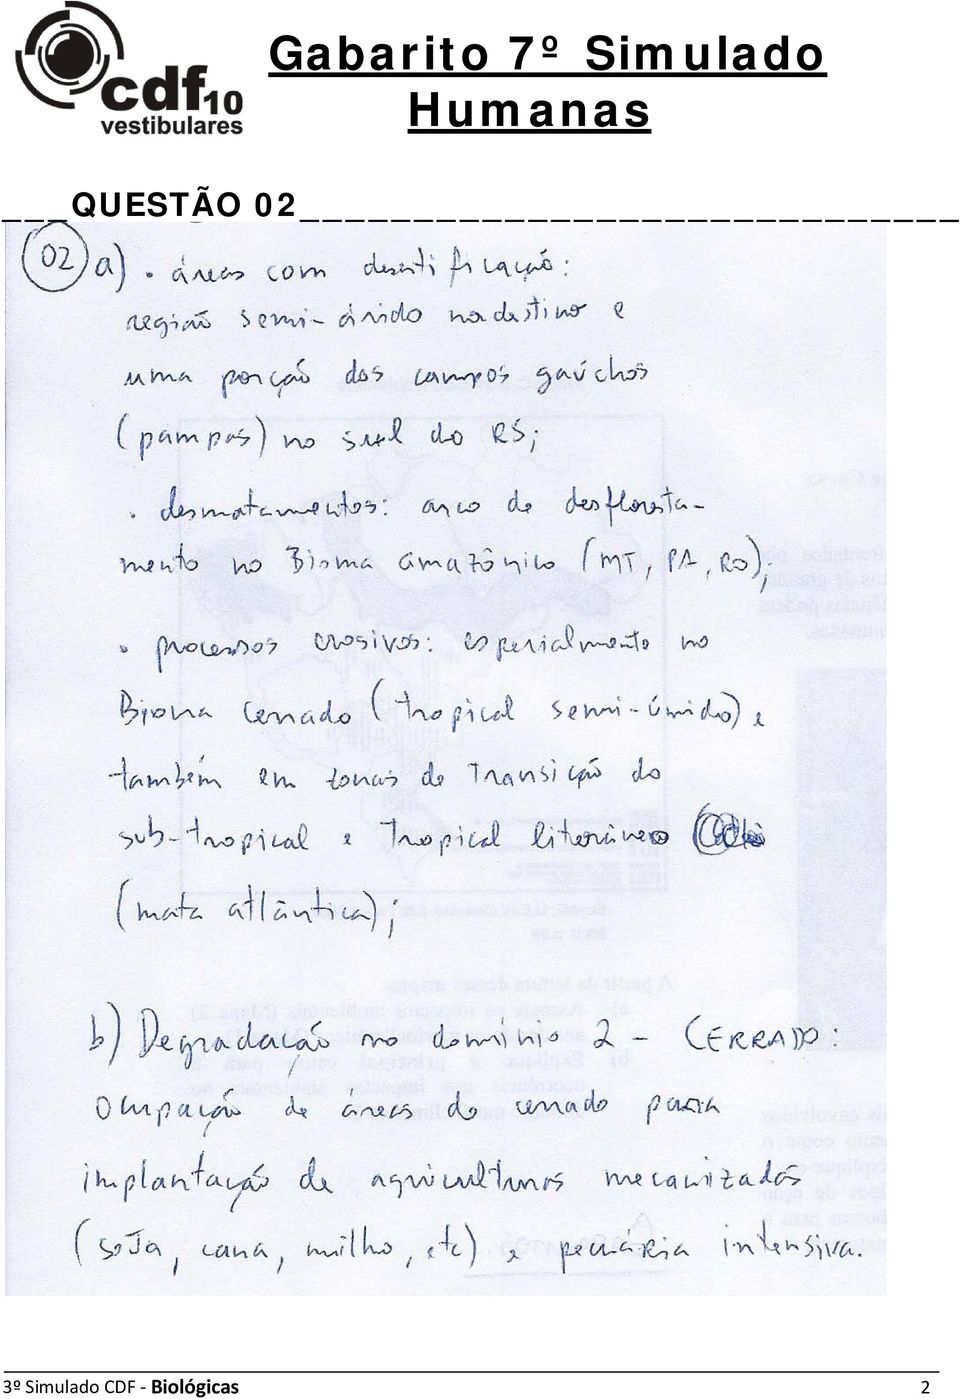 cdf10
vestibulares
Gabarito 7º Simulado
Humanas
___QUESTÃO 02_____________________________
02 a) . áreas com desertificação:
região semi-árido nordestino e
uma porção dos campos gaúchos
(pampas) no sul do RS;
. desmatamentos: arco de desfloresta-
mento no Bioma amazônico (MT, PA, RO);
. processos erosivos: especialmente no
Bioma Cerrado (tropical semi-úmido) e
também em zonas de Transição do
sub-tropical e Tropical literâneo
(mata atlântica);
b) Degradação no domínio 2 - CERRADO:
Ocupação de áreas do cerrado para
implantação de agriculturas mecanizadas
(soja, cana, milho, etc) e pecuária intensiva.
3º Simulado CDF - Biológicas 2